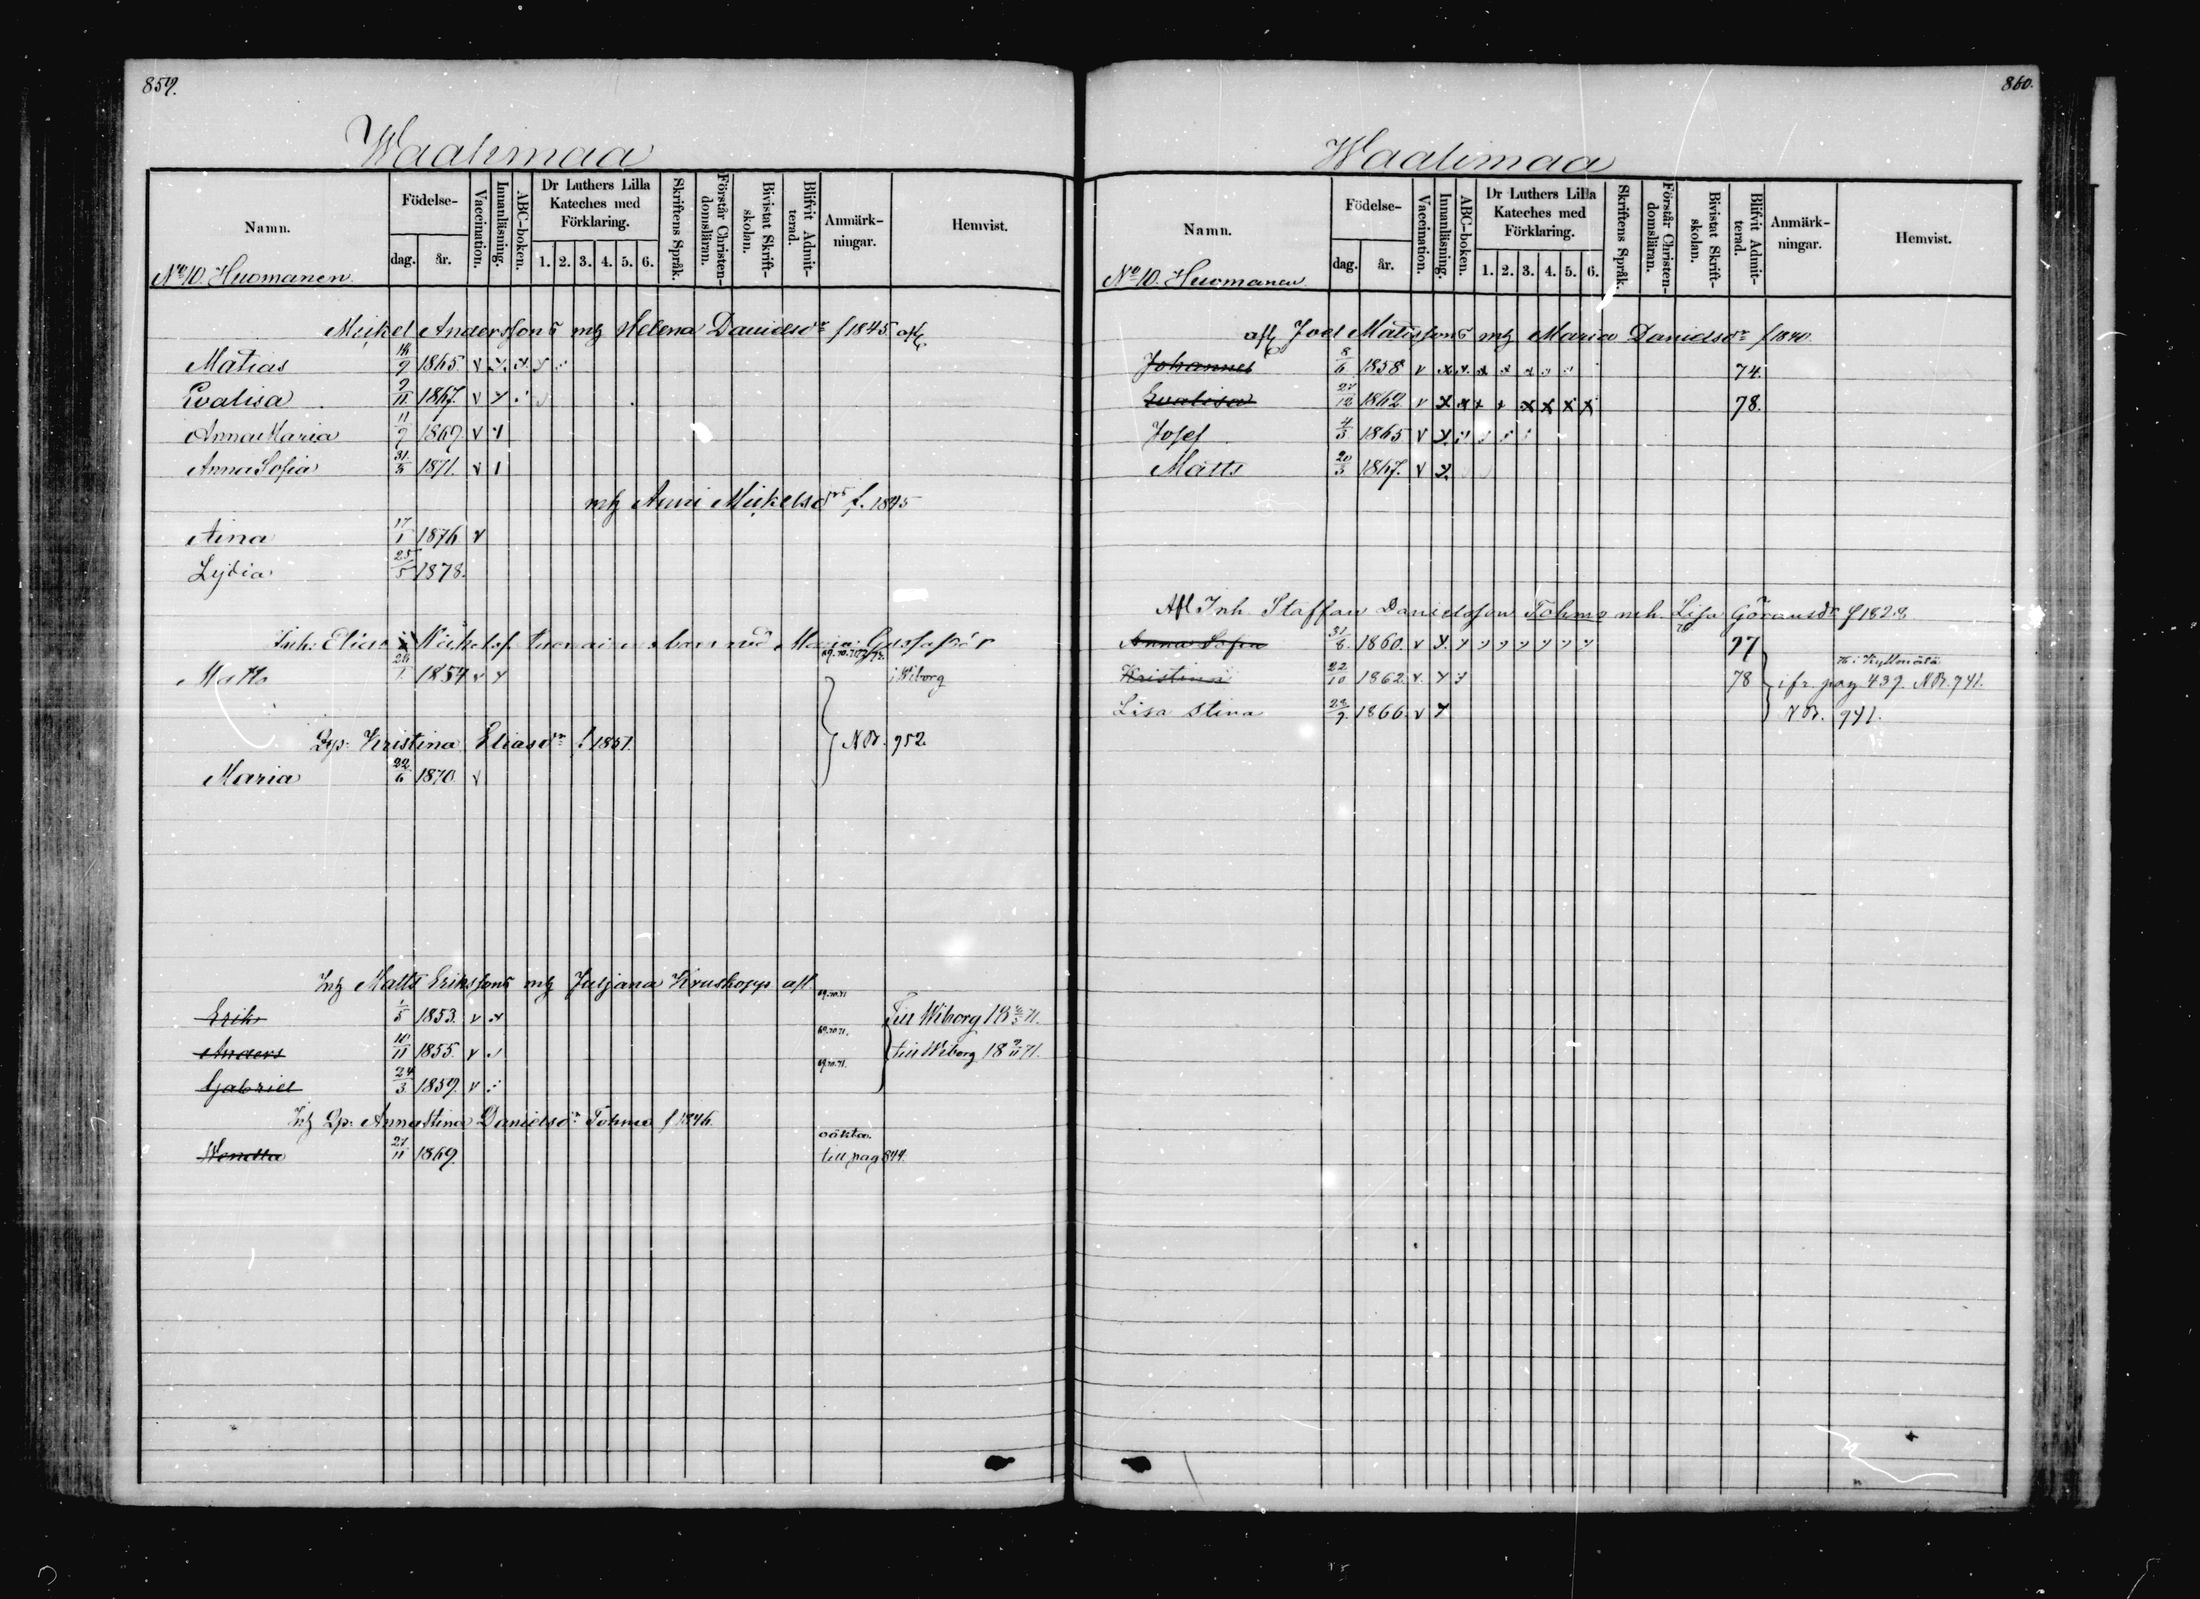 859.
Waalimaa
Namn.
Födelse-
dag.
år.
Vaccination.
Innanläsning.
ABC-boken.
Dr Luthers Lilla Kateches med Förklaring.
1. 2. 3. 4. 5. 6.
Skriftens Språk.
Förstår Christendomsläran.
Bivistat Skriftskolan.
Blifvit Admitterad.
Anmärkningar.
Hemvist.
No 10. Huomanen.
Mickel Anderssons mh Helena Danielsdr f 1845 afl
Matias 1865. v
Evalisa 9/11 1867. v
Anna Maria 11/9 1869. v
Anna Sofia 1871. v
mh Anni Mickelsdr f. 1845
Aina 17/1 1876 v
Lydia 25/5 1878.
Inh: Elias Mickelsf barn med Maria Gustafsdr
Matts 1854 v i Wiborg
Qp: Kristina Eliasdr f. 1851. N.B. 952.
Maria 22/6 1870 v
Inh Matts Erikssons mh Juljana Kruskopp afl.
Erik 1/5 1853. v 69.70.71. Till Wiborg 18 71.
Anders 10/11 1855. v 69.70.71. till Wiborg 18 9/11 71.
Gabriel 24/3 1859. v 69.70.71.
Inh Qp: Anna Stina Danielsdr Tohmo f 1846.
oäkta.
Wendla 21/11 1869. till pag 844.
860.
Waalimaa
Namn.
Födelse-
dag.
år.
Vaccination.
Innanläsning.
ABC-boken.
Dr Luthers Lilla Kateches med Förklaring.
1. 2. 3. 4. 5. 6.
Skriftens Språk.
Förstår Christendomsläran.
Bivistat Skriftskolan.
Blifvit Admitterad.
Anmärkningar.
Hemvist.
No 10. Huomanen
afl Joel Matssons mh Maria Danielsdr f 1840.
Johannes 8/6 1858 v 74.
Evalisa 27/12 1862 v 78.
Josef 4/3 1865 v
Matts 20/3 1867. v
Afl Inh Staffan Danielsson Tohmo m.h. Lisa Göransdr f 1828
Anna Sofia 31/8 1860. v 77
Kristina 22/10 1862. v 78 i fr. pag 439. N.B. 941.
Lisa Stina 1866. v N.B. 941.